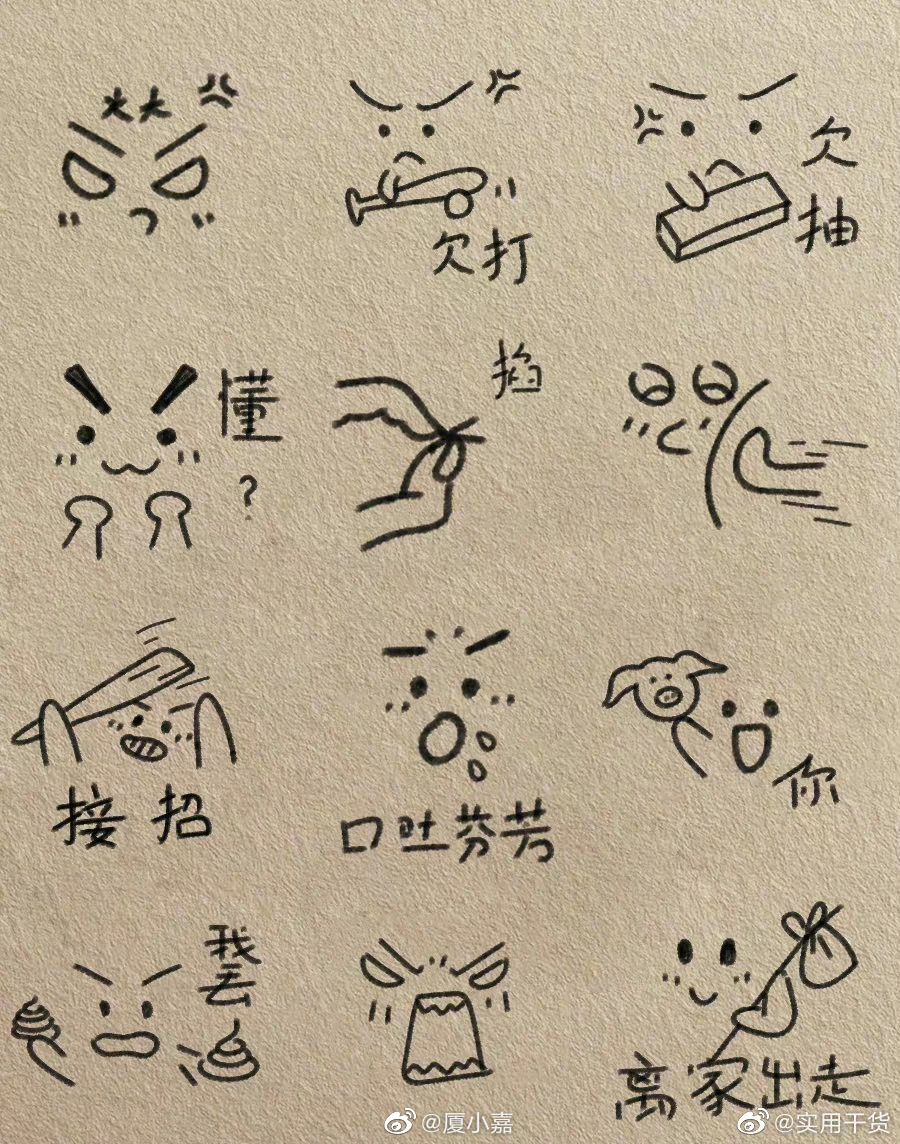 欠打
欠
抽
懂
?
掐
接招
口吐芬芳
你
我
丢
离家出走
@厦小嘉
@实用干货